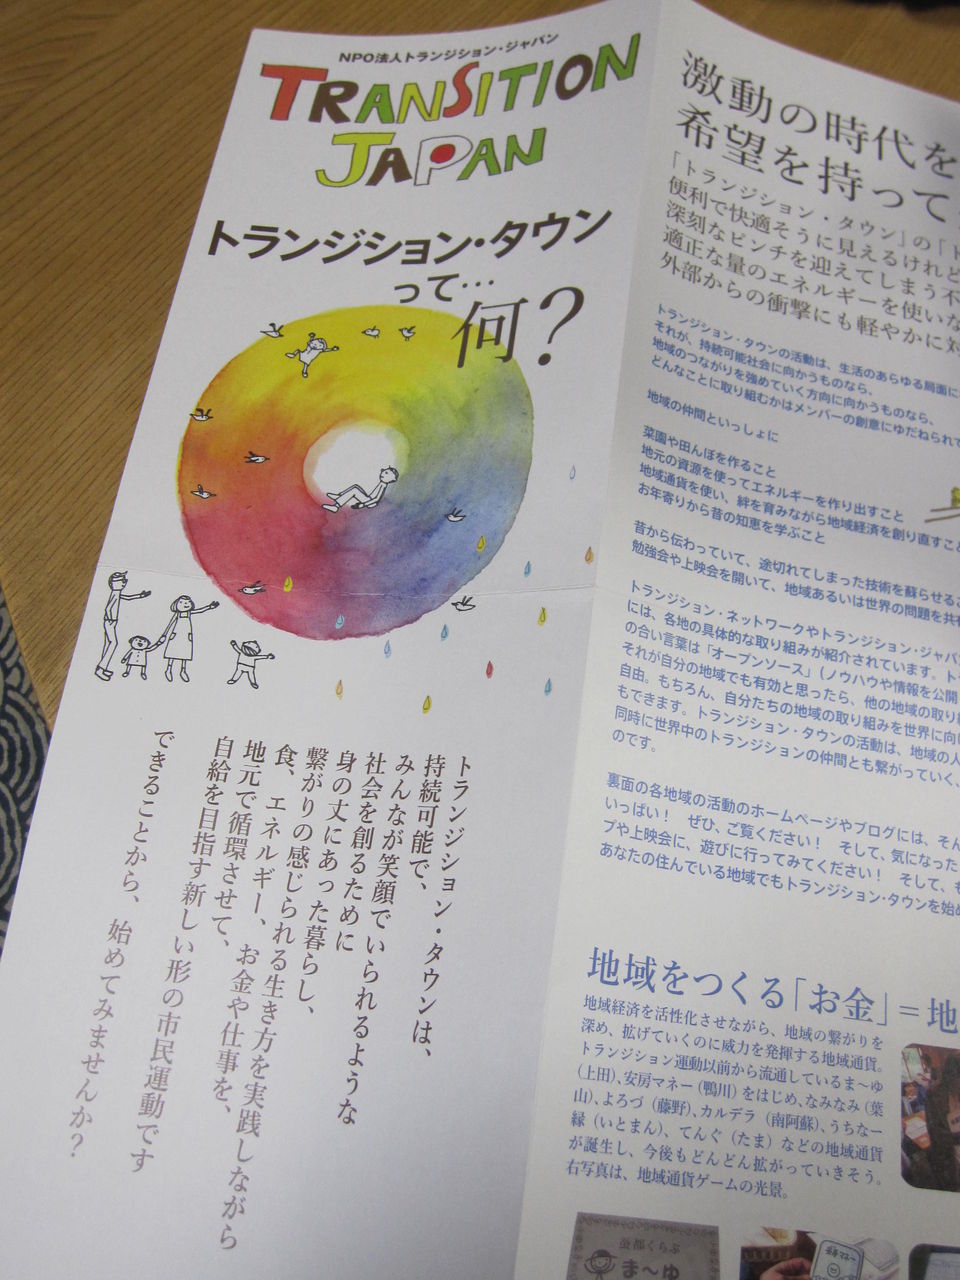 NPO法人トランジション・ジャパン
TRANSITION
JAPAN
トランジション・タウン
って…
何?
トランジション・タウンは、
持続可能で、
みんなが笑顔でいられるような
社会を創るために
身の丈にあった暮らし、
繋がりの感じられる生き方を実践しながら
食、エネルギー、お金や仕事を、
地元で循環させて、
自給を目指す新しい形の市民運動です
できることから、始めてみませんか?
激動の時代を
希望を持って
「トランジション・タウン」の「ト
便利で快適そうに見えるけれど
深刻なピンチを迎えてしまう不
適正な量のエネルギーを使いな
外部からの衝撃にも軽やかに対
トランジション・タウンの活動は、生活のあらゆる局面に
それが、持続可能社会に向かうものなら、
地域のつながりを強めていく方向に向かうものなら、
どんなことに取り組むかはメンバーの創意にゆだねられて
地域の仲間といっしょに
菜園や田んぼを作ること
地元の資源を使ってエネルギーを作り出すこと
地域通貨を使い、絆を育みながら地域経済を創り直すこと
お年寄りから昔の知恵を学ぶこと
昔から伝わっていて、途切れてしまった技術を蘇らせるこ
勉強会や上映会を開いて、地域あるいは世界の問題を共有
トランジション・ネットワークやトランジション・ジャパン
には、各地の具体的な取り組みが紹介されています。ト
の合い言葉は「オープンソース」(ノウハウや情報を公開
それが自分の地域でも有効と思ったら、他の地域の取り組
自由。もちろん、自分たちの地域の取り組みを世界に向け
もできます。トランジション・タウンの活動は、地域の人
同時に世界中のトランジションの仲間とも繋がっていく、
のです。
裏面の各地域の活動のホームページやブログには、そん
いっぱい! ぜひ、ご覧ください! そして、気になった
プや上映会に、遊びに行ってみてください! そして、も
あなたの住んでいる地域でもトランジション・タウンを始め
地域をつくる「お金」=地
地域経済を活性化させながら、地域の繋がりを
深め、拡げていくのに威力を発揮する地域通貨。
トランジション運動以前から流通しているま~ゆ
(上田)、安房マネー(鴨川)をはじめ、なみなみ(葉
山)、よろづ(藤野)、カルデラ(南阿蘇)、うちなー
縁(いとまん)、てんぐ(たま)などの地域通貨
が誕生し、今後もどんどん拡がっていきそう。
右写真は、地域通貨ゲームの光景。
蚕都くらぶ
ま~ゆ